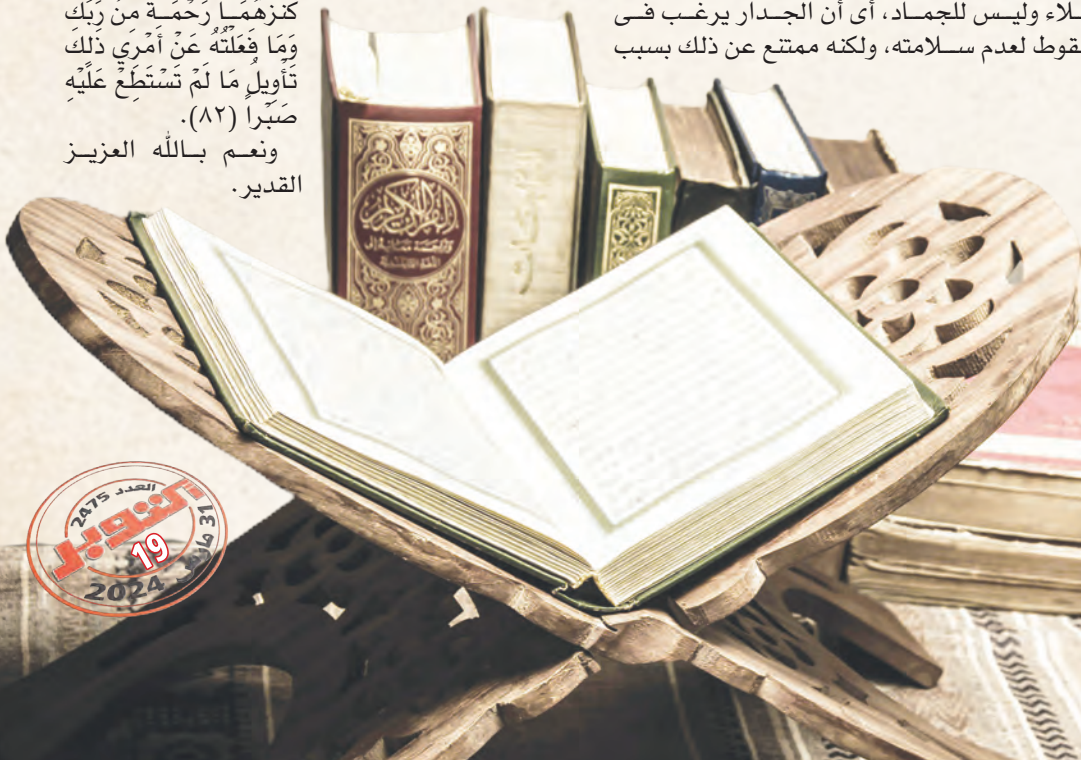 ـلاء وليس للجماد، أى أن الجدار يرغب فى
قوط لعدم سلامته، ولكنه ممتنع عن ذلك بسبب
كَنزَهُمَا رَحْمَةً مِّن رَّبِّكَ
وَمَا فَعَلْتُهُ عَنْ أَمْرِي ذَلِكَ
تَأْوِيلُ مَا لَمْ تَسْتَطِعْ عَلَيْهِ
صَبْراً (٨٢).
ونعم بالله العزيز
القدير.
القرآن الكريم
العدد 2475
أكتوبر
19
31 مارس
2024